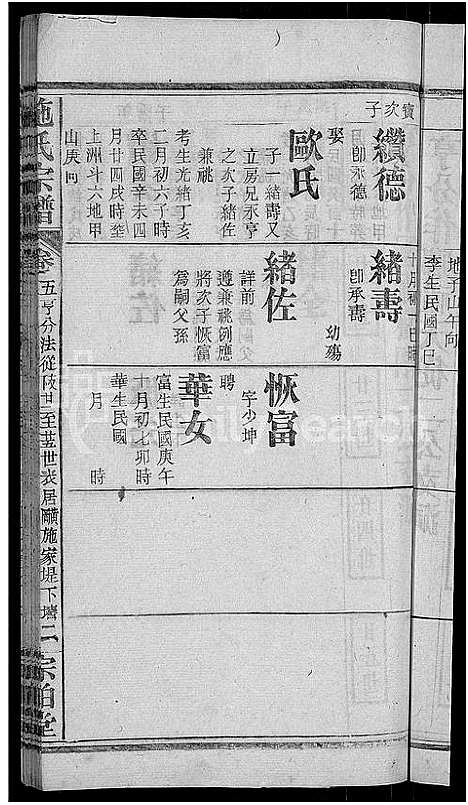 地子山午向
李生民國丁巳
實次子
纘德
即承德
娶
歐氏
子一緒壽又
立房兄永亨
之次子緒佐
兼祧
考生光緒丁亥
二月初六子時
卒民國辛未四
月廿四戌時塟
上洲斗六地甲
山庚向
緒壽
即承壽
幼殤
緒佐
詳前
遵兼祧例應
將次子恢富
爲嗣父孫
恢富
字少坤
聘
華女
富生民國庚午
十月初七卯時
華生民國
月 時
施氏宗譜
卷五
亨分法從
至
世表居
施家堤下
二
宗伯堂